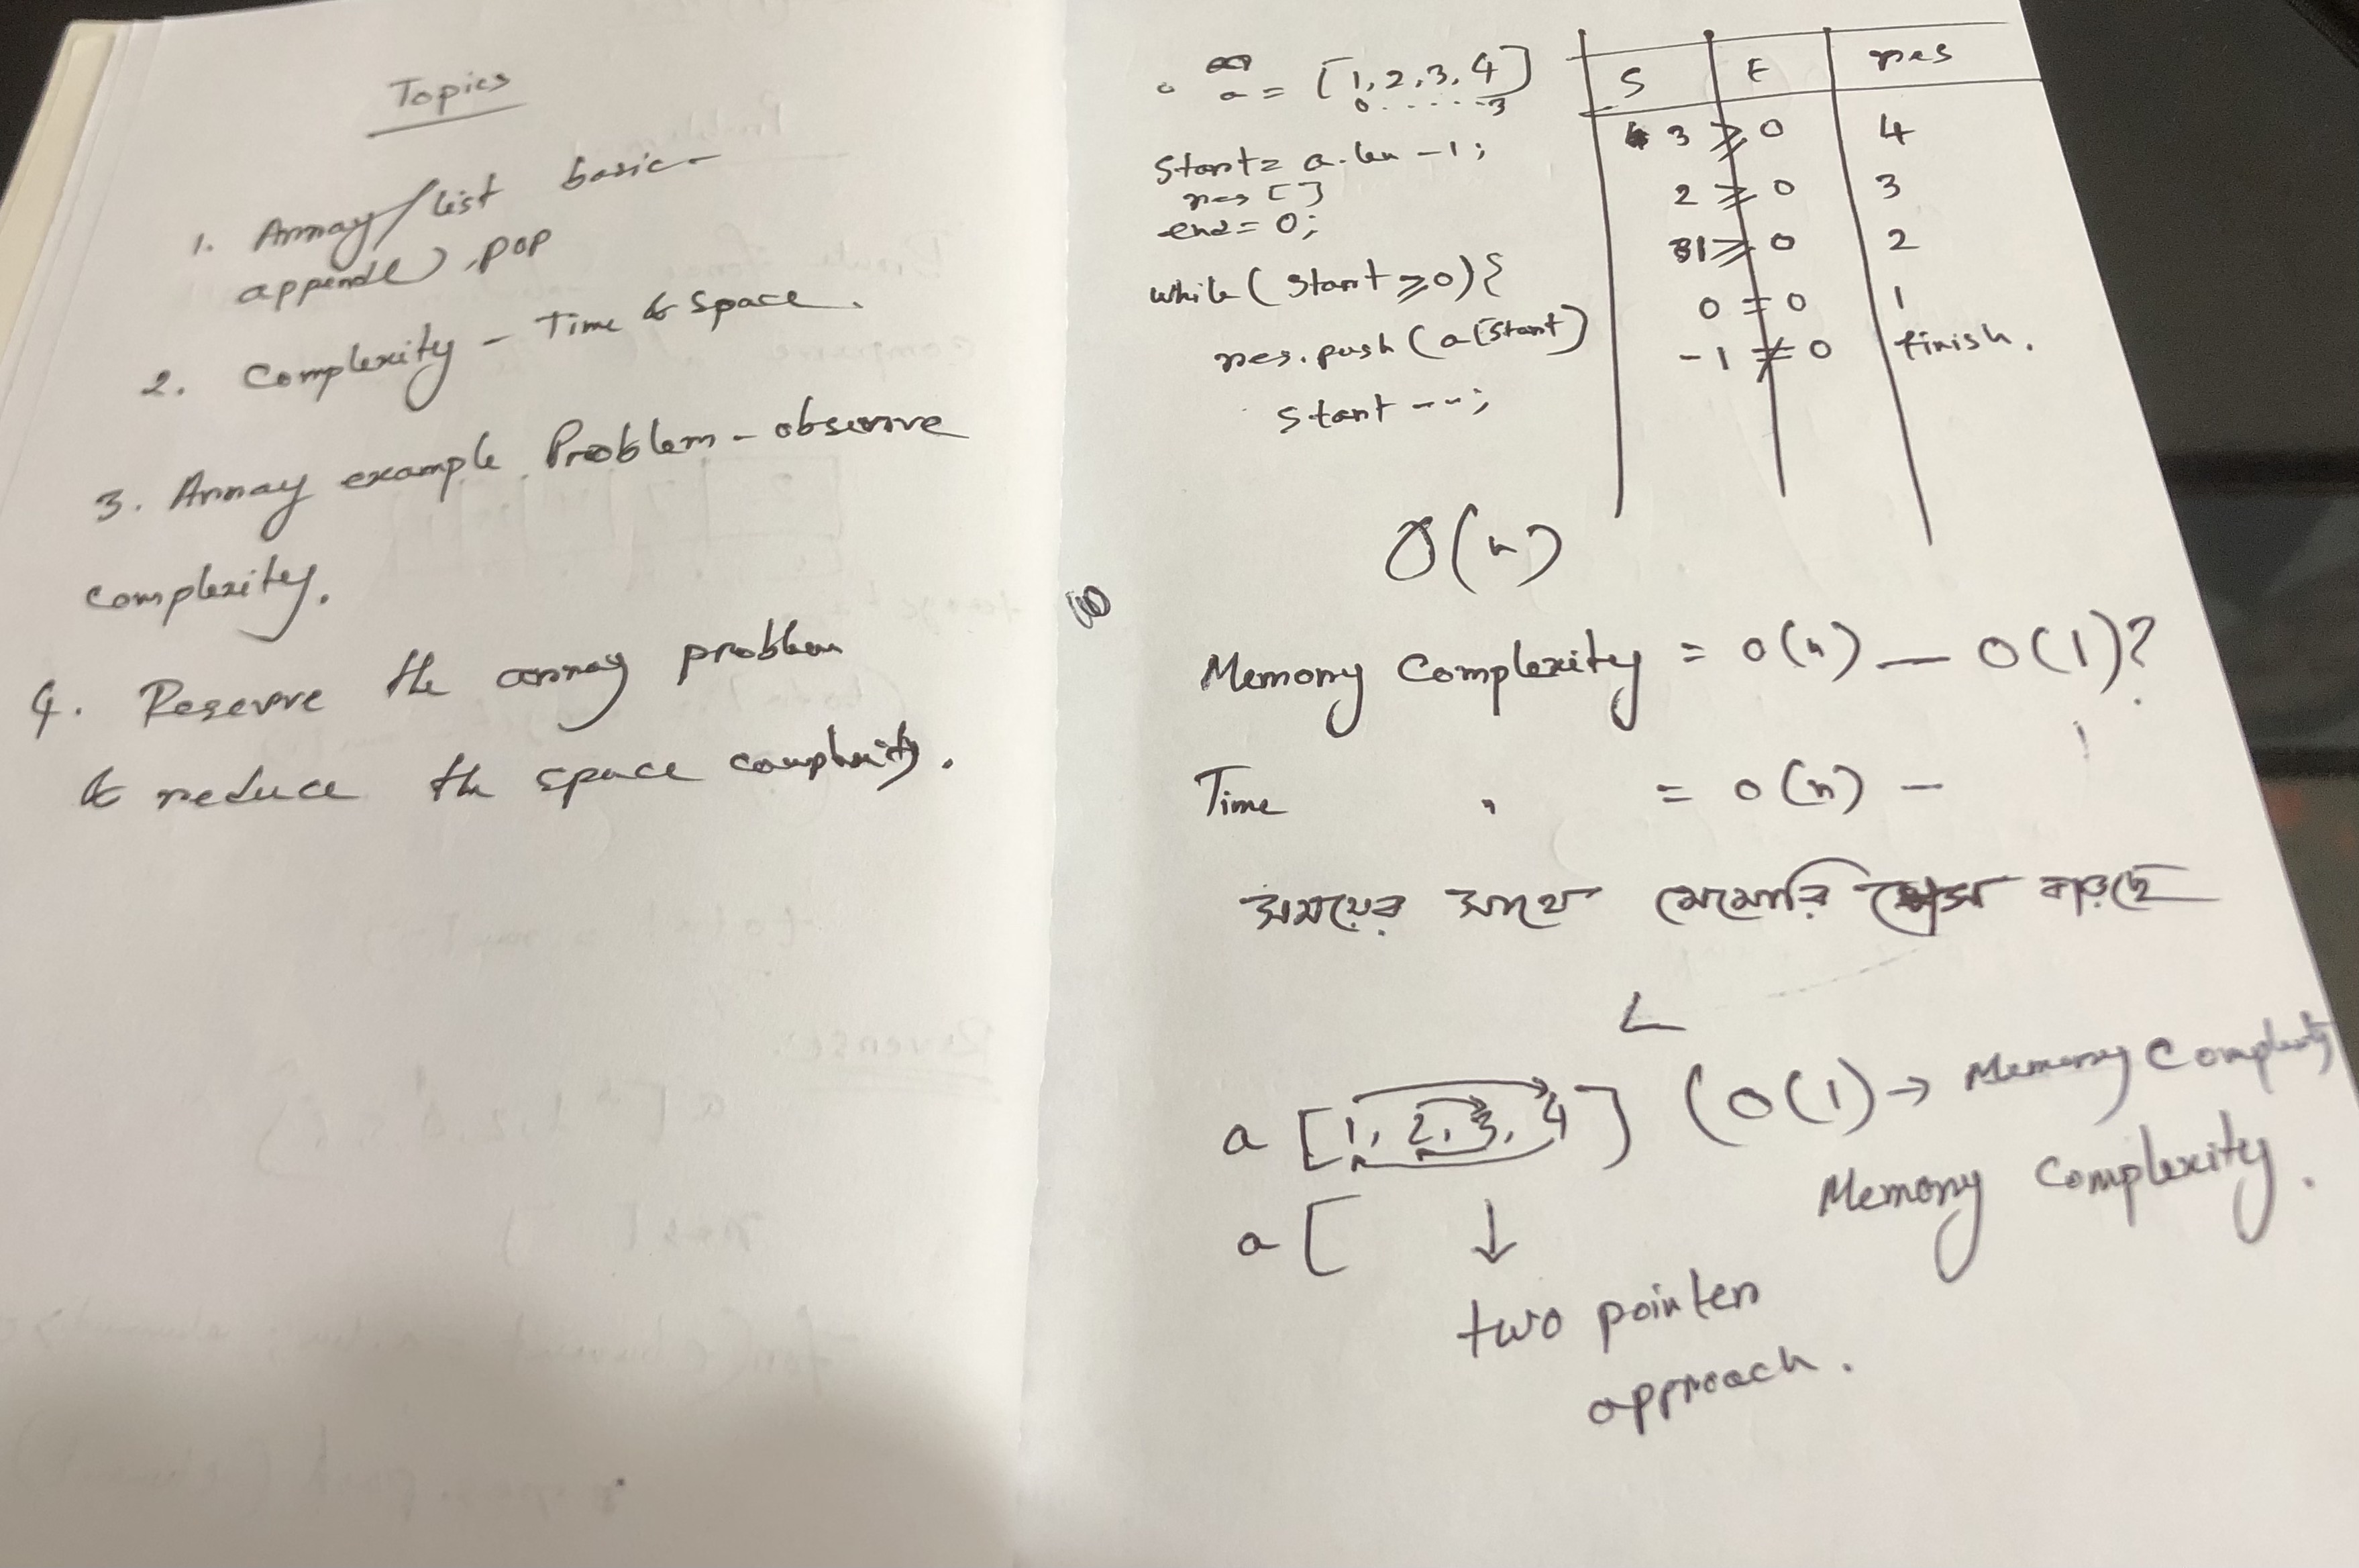 Topics
1. Array/list basic-
append, pop
2. Complexity - Time & Space.
3. Array example Problem - observe
complexity.
4. Reserve the array problem
& reduce the space complexity.
a = [1, 2, 3, 4]
0 . . . . . 3
Start = a.len -1;
res []
end = 0;
while ( start ≥ 0) {
res.push (a[start)
start --;
S E res
3 ≥ 0 4
2 ≥ 0 3
1 ≥ 0 2
0 = 0 1
-1 ≠ 0 finish.
O(n)
Memory Complexity = O(n) — O(1)?
Time " = O(n) -
সময়ের সাথে মেমোরি স্পেস বাড়ছে
a [1, 2, 3, 4] (O(1) → Memory Complexity
Memory Complexity.
a [ ↓
two pointer
approach.